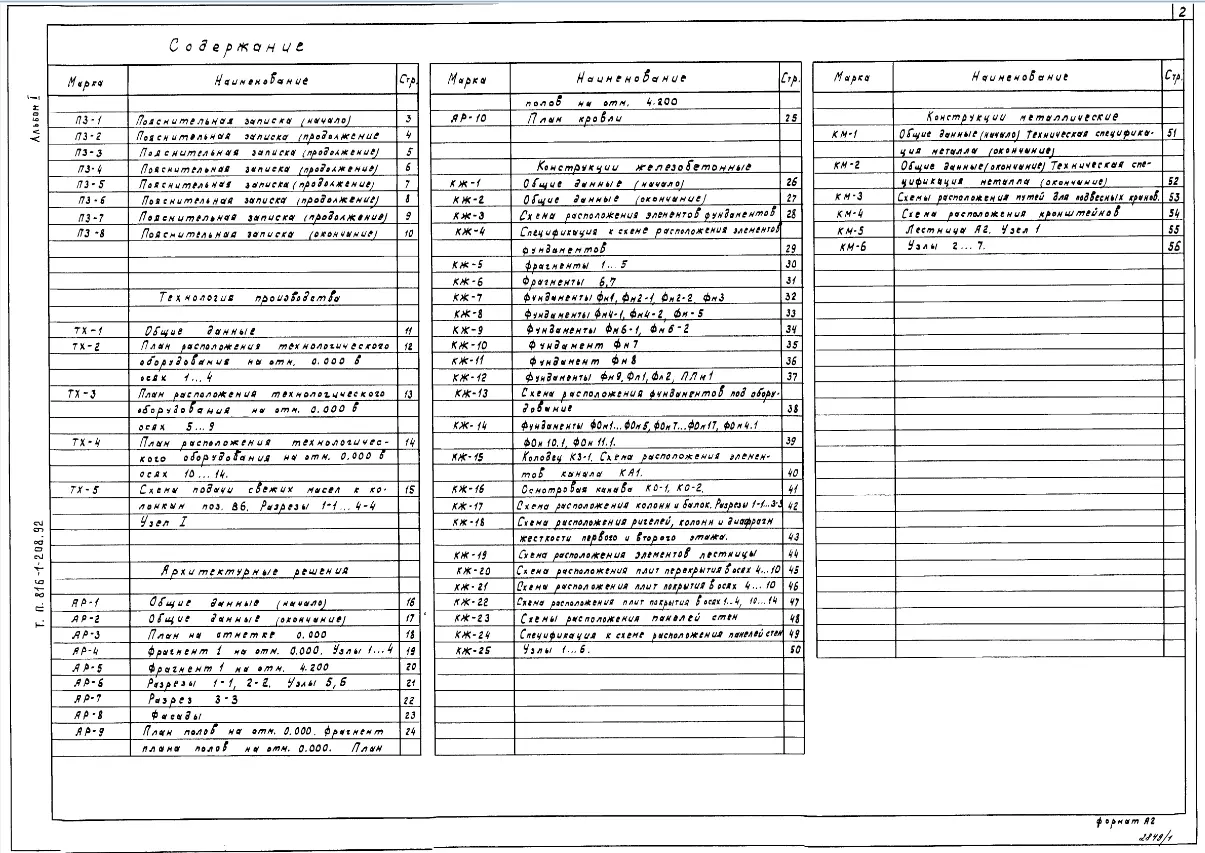 2
Содержание
Альбом I
Т. П. 816-1-208.92
Марка Наименование Стр.
ПЗ-1 Пояснительная записка (начало) 3
ПЗ-2 Пояснительная записка (продолжение 4
ПЗ-3 Пояснительная записка (продолжение) 5
ПЗ-4 Пояснительная записка (продолжение) 6
ПЗ-5 Пояснительная записка (продолжение) 7
ПЗ-6 Пояснительная записка (продолжение) 8
ПЗ-7 Пояснительная записка (продолжение) 9
ПЗ-8 Пояснительная записка (окончание) 10
Технология производства
ТХ-1 Общие данные 11
ТХ-2 План расположения технологического 12
оборудования на отм. 0.000 в
осях 1...4
ТХ-3 План расположения технологического 13
оборудования на отм. 0.000 в
осях 5...9
ТХ-4 План расположения технологичес- 14
кого оборудования на отм. 0.000 в
осях 10...14.
ТХ-5 Схемы подачи свежих масел к ко- 15
лонкам поз. 86. Разрезы 1-1...4-4
Узел I
Архитектурные решения
АР-1 Общие данные (начало) 16
АР-2 Общие данные (окончание) 17
АР-3 План на отметке 0.000 18
АР-4 Фрагмент 1 на отм. 0.000. Узлы 1...4 19
АР-5 Фрагмент 1 на отм. 4.200 20
АР-6 Разрезы 1-1, 2-2. Узлы 5,6 21
АР-7 Разрез 3-3 22
АР-8 Фасады 23
АР-9 План полов на отм. 0.000. Фрагмент 24
плана полов на отм. 0.000. План
Марка Наименование Стр.
полов на отм. 4.200
АР-10 План кровли 25
Конструкции железобетонные
КЖ-1 Общие данные (начало) 26
КЖ-2 Общие данные (окончание) 27
КЖ-3 Схема расположения элементов фундаментов 28
КЖ-4 Спецификация к схеме расположения элементов
фундаментов 29
КЖ-5 Фрагменты 1...5 30
КЖ-6 Фрагменты 6,7 31
КЖ-7 Фундаменты Фм1, Фм2-1, Фм2-2, Фм3 32
КЖ-8 Фундаменты Фм4-1, Фм4-2, Фм-5 33
КЖ-9 Фундаменты Фм6-1, Фм6-2 34
КЖ-10 Фундамент Фм7 35
КЖ-11 Фундамент Фм8 36
КЖ-12 Фундаменты Фм9, Фл1, Фл2, ПЛм1 37
КЖ-13 Схема расположения фундаментов под обору-
дование 38
КЖ-14 Фундаменты ФОм1...ФОм5, ФОм7...ФОм17, ФОм4.1
ФОм10.1, ФОм11.1. 39
КЖ-15 Колодец КЗ-1. Схема расположения элемен-
тов канала КА1. 40
КЖ-16 Осмотровая канава КО-1, КО-2. 41
КЖ-17 Схема расположения колонн и балок. Разрезы 1-1...3-3 42
КЖ-18 Схема расположения ригелей, колонн и диафрагм
жесткости первого и второго этажа. 43
КЖ-19 Схема расположения элементов лестницы 44
КЖ-20 Схема расположения плит перекрытия в осях 4...10 45
КЖ-21 Схема расположения плит покрытия в осях 4...10 46
КЖ-22 Схема расположения плит покрытия в осях 1...4, 10...14 47
КЖ-23 Схемы расположения панелей стен 48
КЖ-24 Спецификация к схеме расположения панелей стен 49
КЖ-25 Узлы 1...6. 50
Марка Наименование Стр.
Конструкции металлические
КМ-1 Общие данные (начало) Техническая специфика- 51
ция металла (окончание)
КМ-2 Общие данные (окончание) Техническая спе-
цификация металла (окончание) 52
КМ-3 Схемы расположения путей для подвесных кранов. 53
КМ-4 Схема расположения кронштейнов 54
КМ-5 Лестница А2. Узел 1 55
КМ-6 Узлы 2...7. 56
Формат А2
2849/1